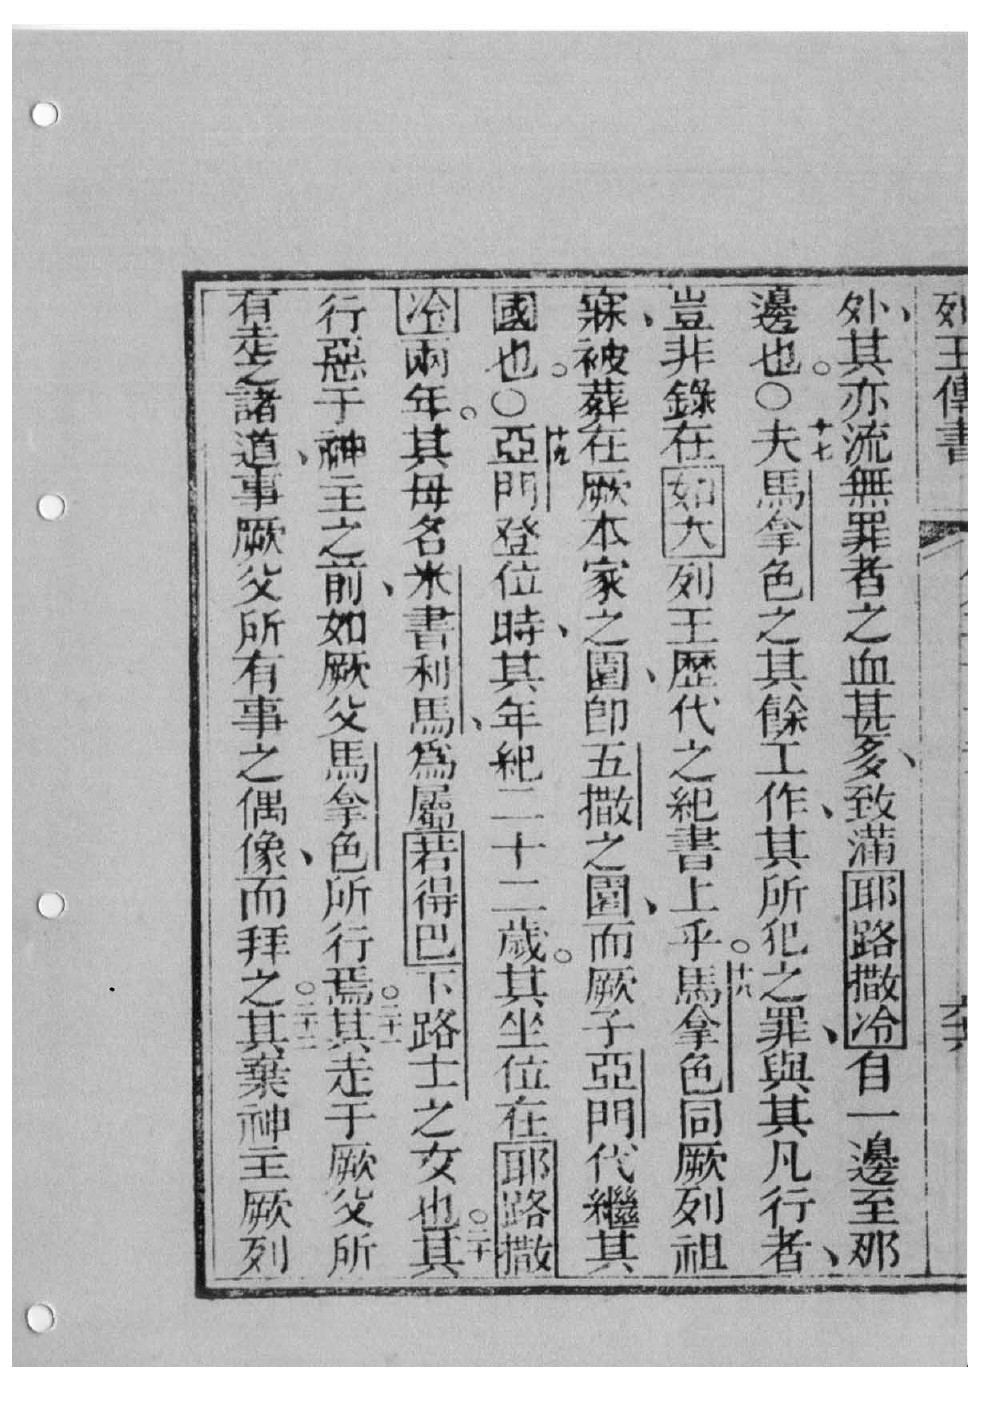 列王傳書
外、其亦流無罪者之血甚多、致滿耶路撒冷自一邊至那
邊也。○十七夫馬拿色之其餘工作、其所犯之罪、與其凡行者、
豈非錄在如大列王歷代之紀書上乎。十八馬拿色同厥列祖
寐、被葬在厥本家之園、卽五撒之園、而厥子亞門代繼其
國也。○十九亞門登位時、其年紀二十二歲。其坐位在耶路撒
冷兩年。其母名米書利馬、爲屬若得巴下路士之女也。二十其
行惡于神主之前、如厥父馬拿色所行焉。二十一其走于厥父所
有走之諸道、事厥父所有事之偶像、而拜之。二十二其棄神主厥列